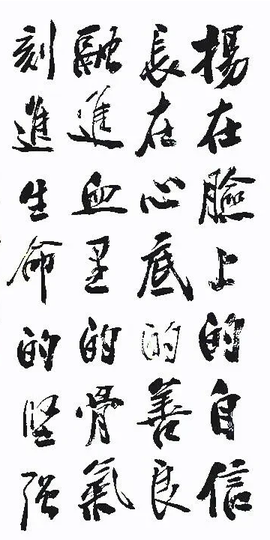 揚在臉上的自信
長在心底的善良
融進血里的骨氣
刻進生命的坚强